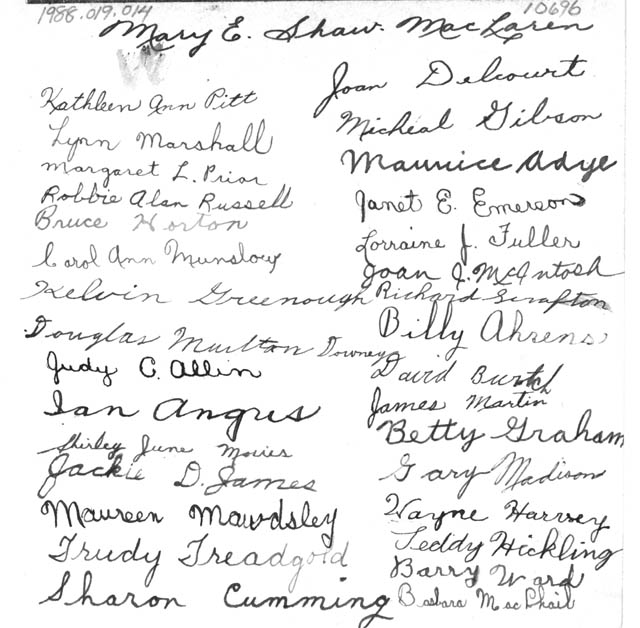 1988.019.014
10696
Mary E. Shaw. MacLaren
Kathleen Ann Pitt
Lynn Marshall
Margaret L. Prior
Robbie Alan Russell
Bruce Horton
Carol Ann Munslow
Kelvin Greenough
Douglas Multon Downey
Judy C. Allin
Ian Angus
Shirley June
Jackie D. James
Maureen Mawdsley
Trudy Treadgold
Sharon Cumming
Joan Delcourt
Micheal Gibson
Maurice Adye
Janet E. Emerson
Lorraine J. Fuller
Joan J. McIntosh
Richard
Billy Ahrens
David Burtch
James Martin
Betty Graham
Gary Madison
Wayne Harvey
Teddy Hickling
Barry Ward
Barbara MacPhail